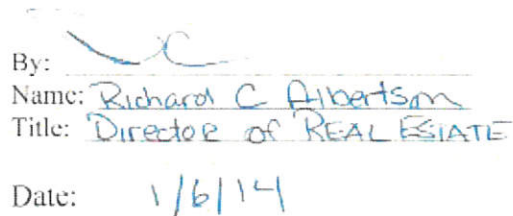 By:
Name: Richard C Albertson
Title: Director of REAL ESTATE
Date: 1/6/14